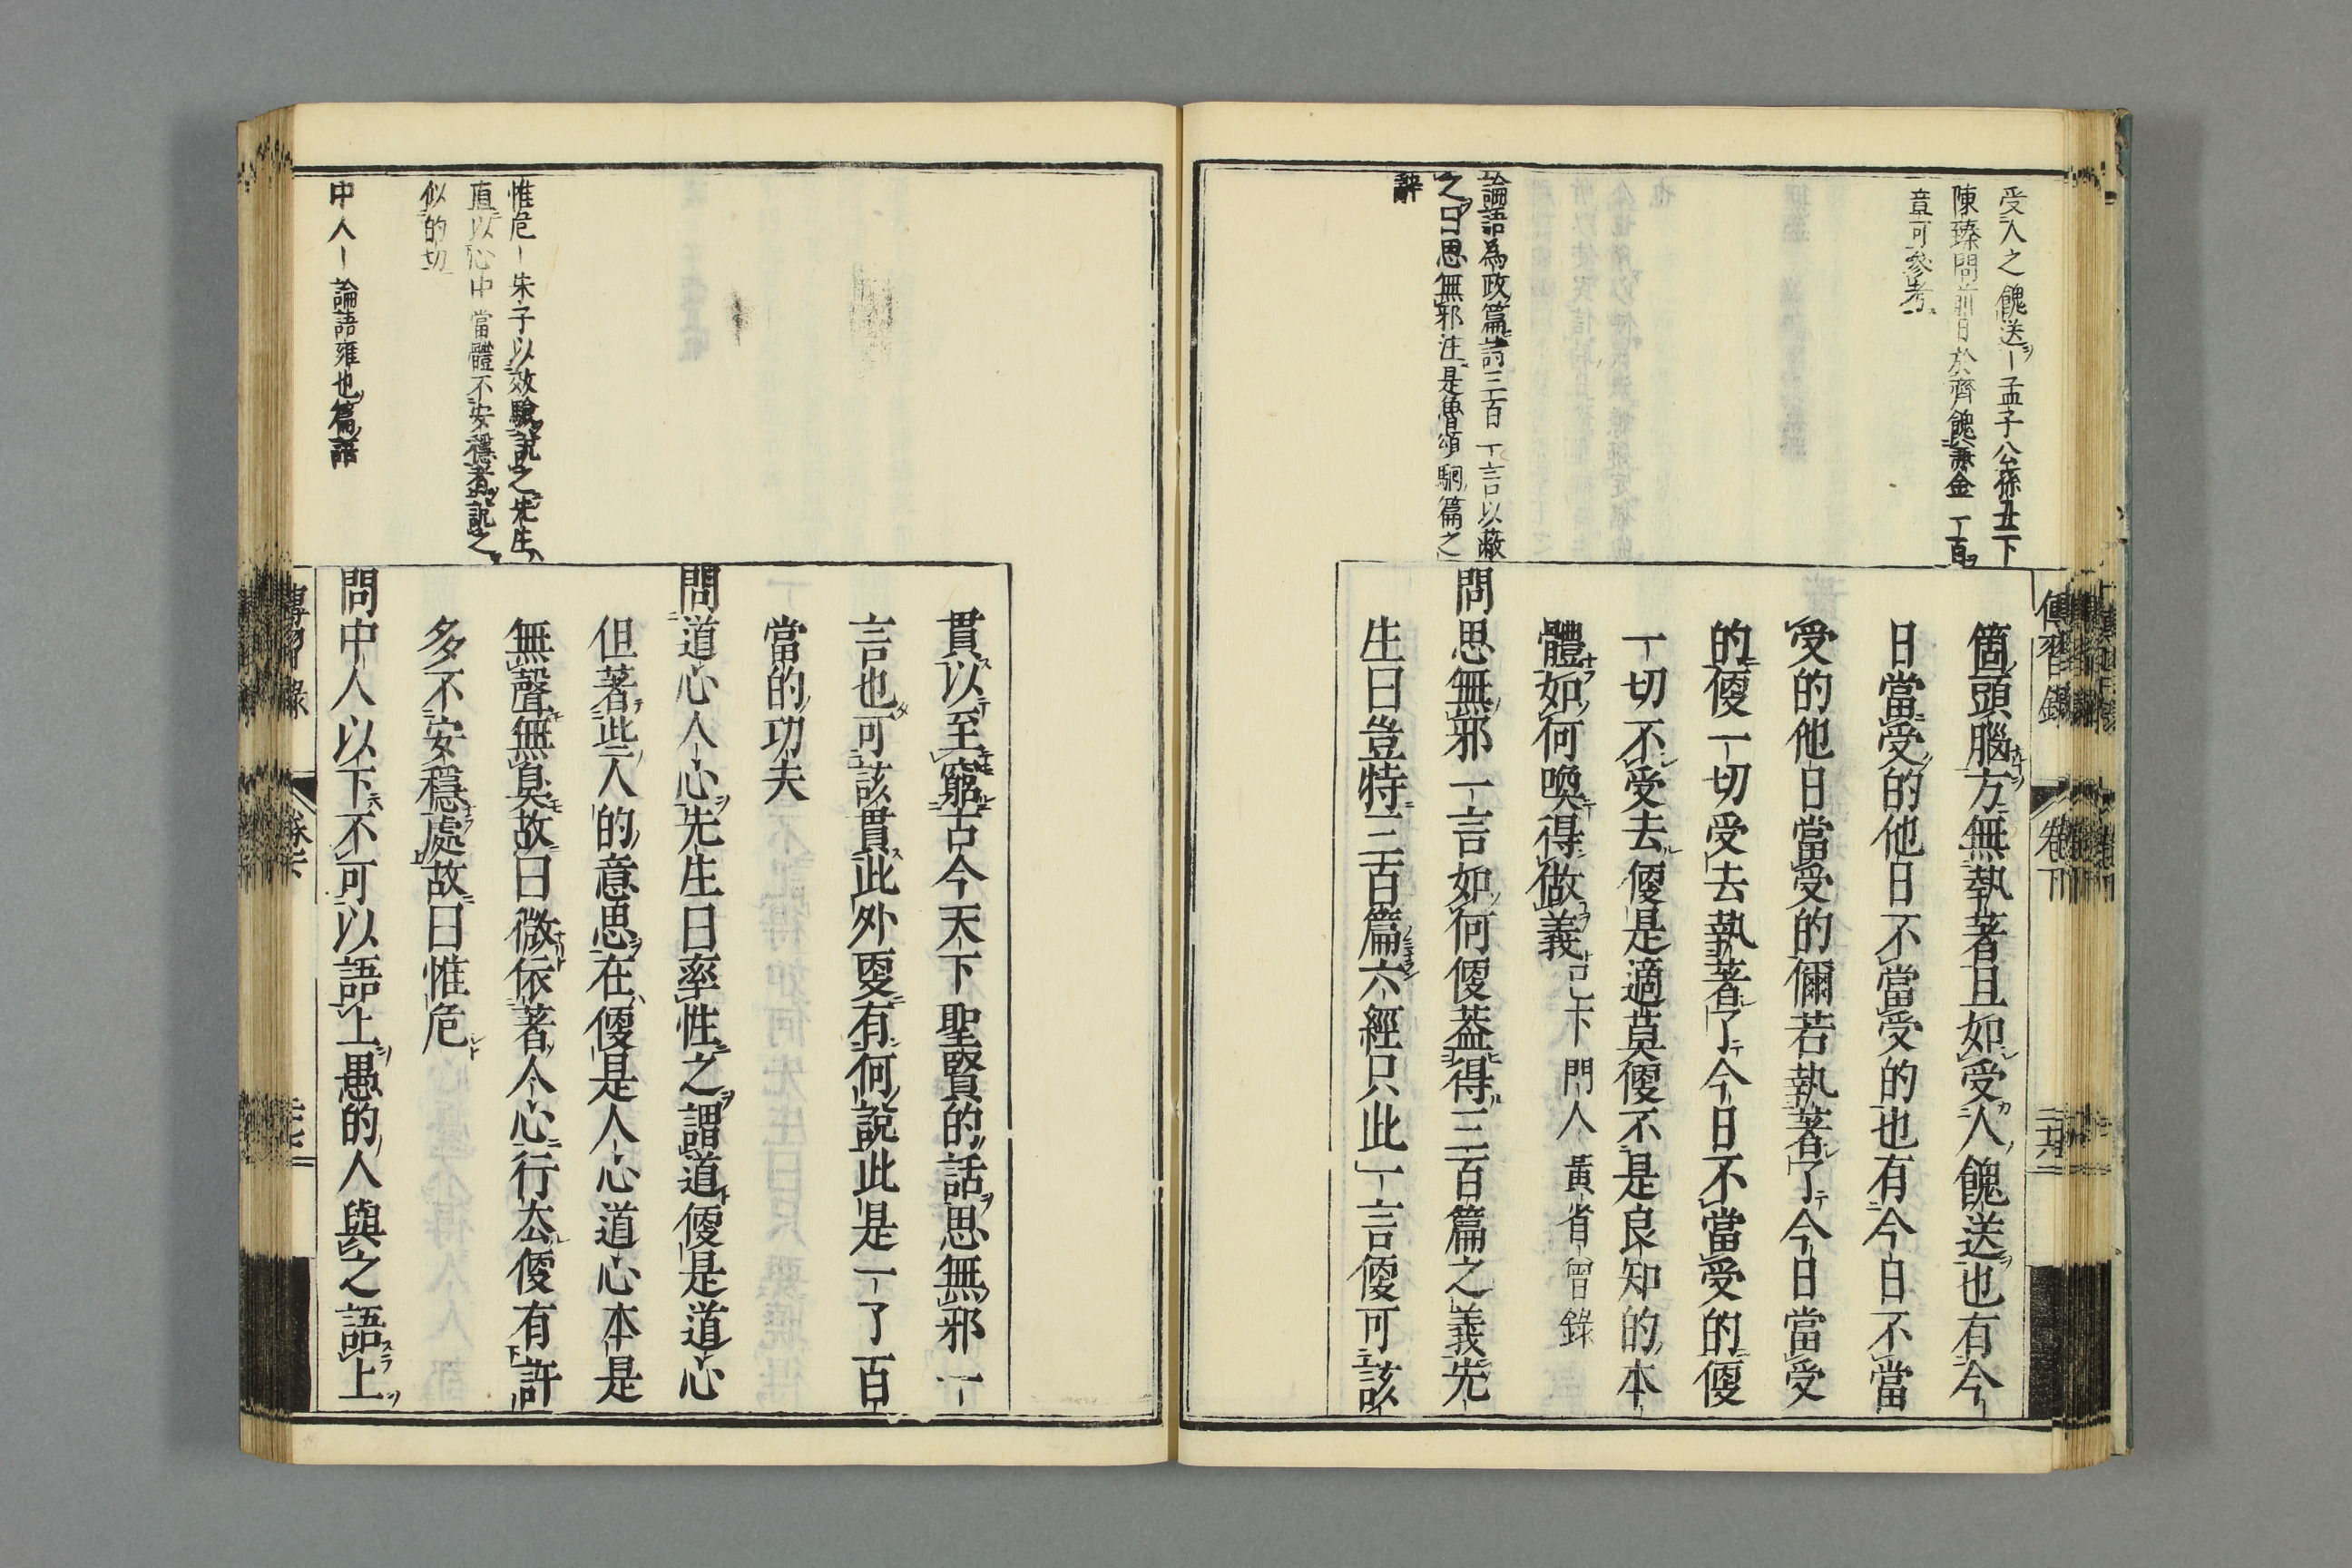 受人之餽送ー孟子公孫丑下
陳臻問前日於齊餽兼金一百
章可參考
論語為政篇詩三百一言以蔽
之曰思無邪注是魯頌駉篇之
辭
傳習錄
卷下
箇頭腦方無執著且如受人餽送也有今
日當受的他日不當受的也有今日不當
受的他日當受的儞若執著了今日當受
的㪅一切受去執著了今日不當受的㪅
一切不受去㪅是適莫㪅不是良知的本
體如何喚得做義 已下門人黃省曾錄
問思無邪一言如何㪅蓋得三百篇之義先
生曰豈特三百篇六經只此一言㪅可該
惟危ー朱子以效驗說之先生
直以心中當體不安穩者說之
似的切
中人ー論語雍也篇語
貫以至窮古今天下聖賢的話思無邪一
言也可該貫此外㪅有何說此是一了百
當的功夫
問道心人心先生曰率性之謂道㪅是道心
但著些人的意思在㪅是人心道心本是
無聲無臭故曰微依著人心行去㪅有許
多不安穩處故曰惟危
問中人以下不可以語上愚的人與之語上
傳習錄
卷下